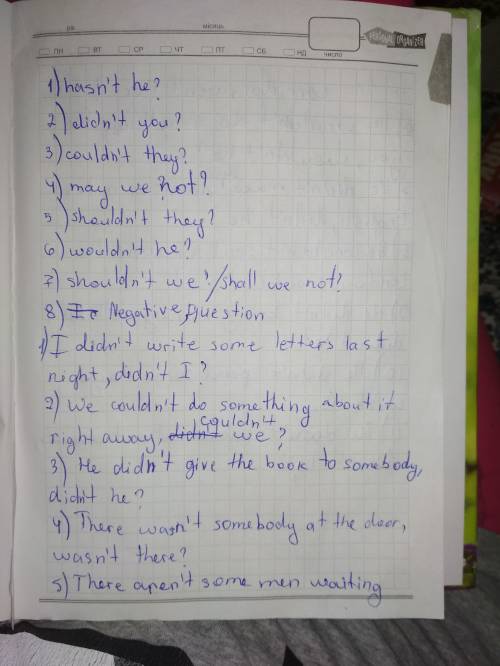 рік місяць
ПН ВТ СР ЧТ ПТ СБ НД число
PERSONAL ORGANIZER
1) hasn't he?
2) didn't you?
3) couldn't they?
4) may we not?
5) shouldn't they?
6) wouldn't he?
7) shouldn't we?/shall we not?
8) Negative, question
1) I didn't write some letters last
night, didn't I?
2) We couldn't do something about it
right away, didn't couldn't we?
3) He didn't give the book to somebody,
didn't he?
4) There wasn't somebody at the door,
wasn't there?
5) There aren't some men waiting